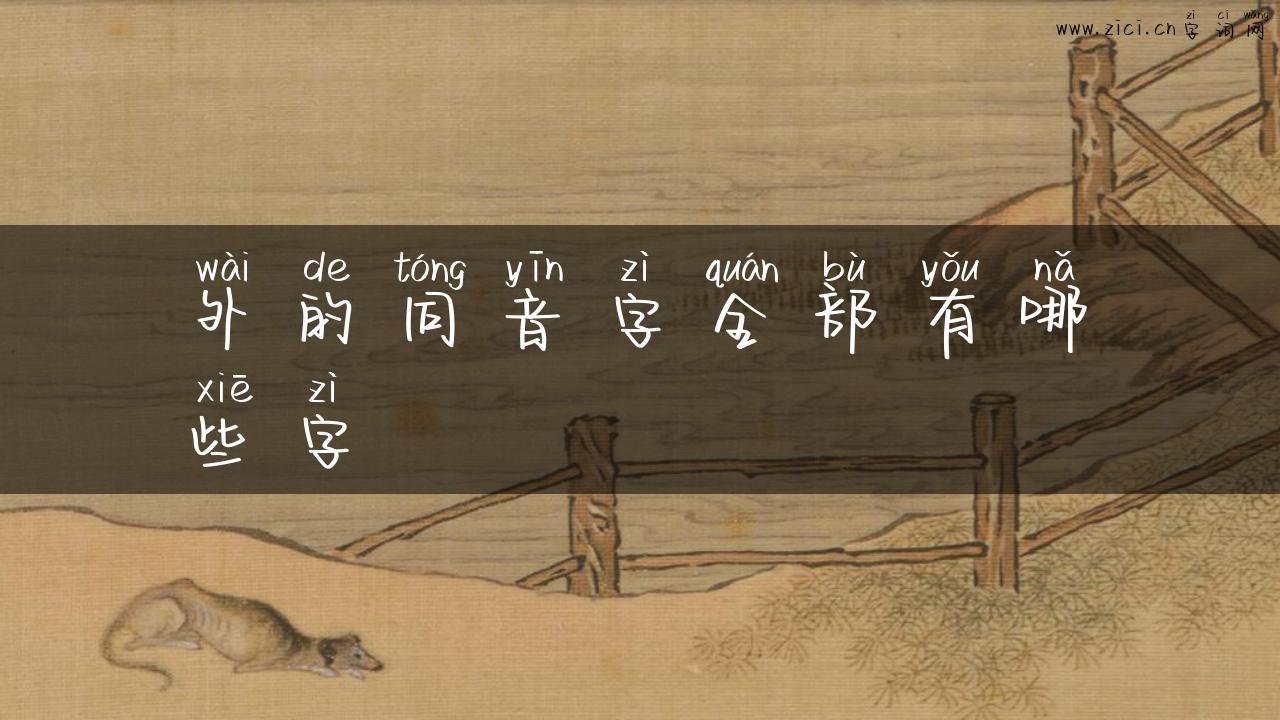 zì cí wǎng
www.zici.cn字词网
wài de tóng yīn zì quán bù yǒu nǎ
外的同音字全部有哪
xiē zì
些字